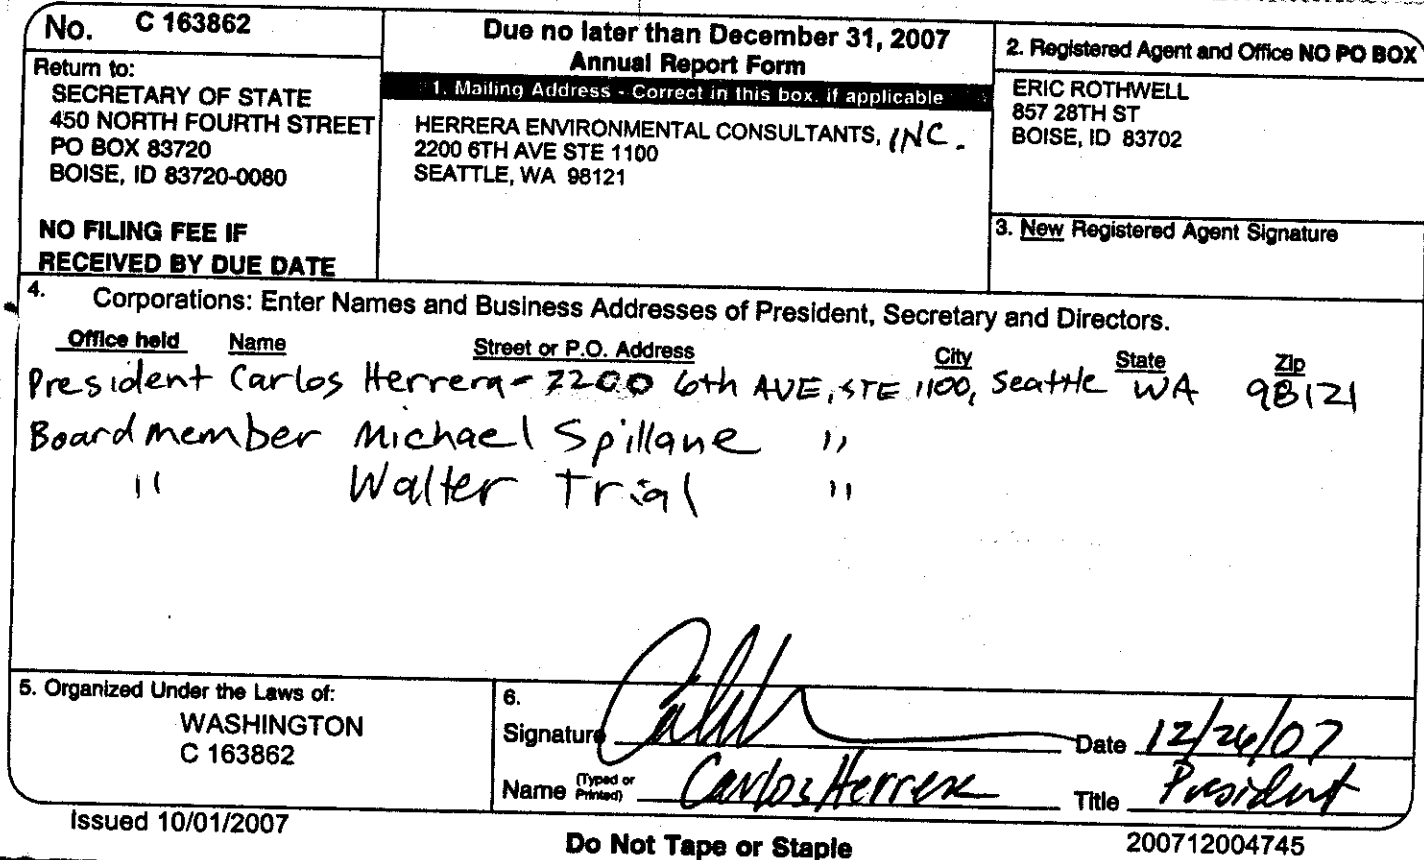 No. C 163862
Return to:
SECRETARY OF STATE
450 NORTH FOURTH STREET
PO BOX 83720
BOISE, ID 83720-0080
NO FILING FEE IF
RECEIVED BY DUE DATE
Due no later than December 31, 2007
Annual Report Form
1. Mailing Address - Correct in this box, if applicable
HERRERA ENVIRONMENTAL CONSULTANTS, INC.
2200 6TH AVE STE 1100
SEATTLE, WA 98121
2. Registered Agent and Office NO PO BOX
ERIC ROTHWELL
857 28TH ST
BOISE, ID 83702
3. New Registered Agent Signature
4. Corporations: Enter Names and Business Addresses of President, Secretary and Directors.
Office held Name Street or P.O. Address City State Zip
President Carlos Herrera - 2200 6th AVE, STE 1100, Seattle WA 98121
Board member Michael Spillane "
" Walter Trial "
5. Organized Under the Laws of:
WASHINGTON
C 163862
6.
Signature Date 12/26/07
Name (Typed or Printed) Carlos Herrera Title President
Issued 10/01/2007
Do Not Tape or Staple
200712004745